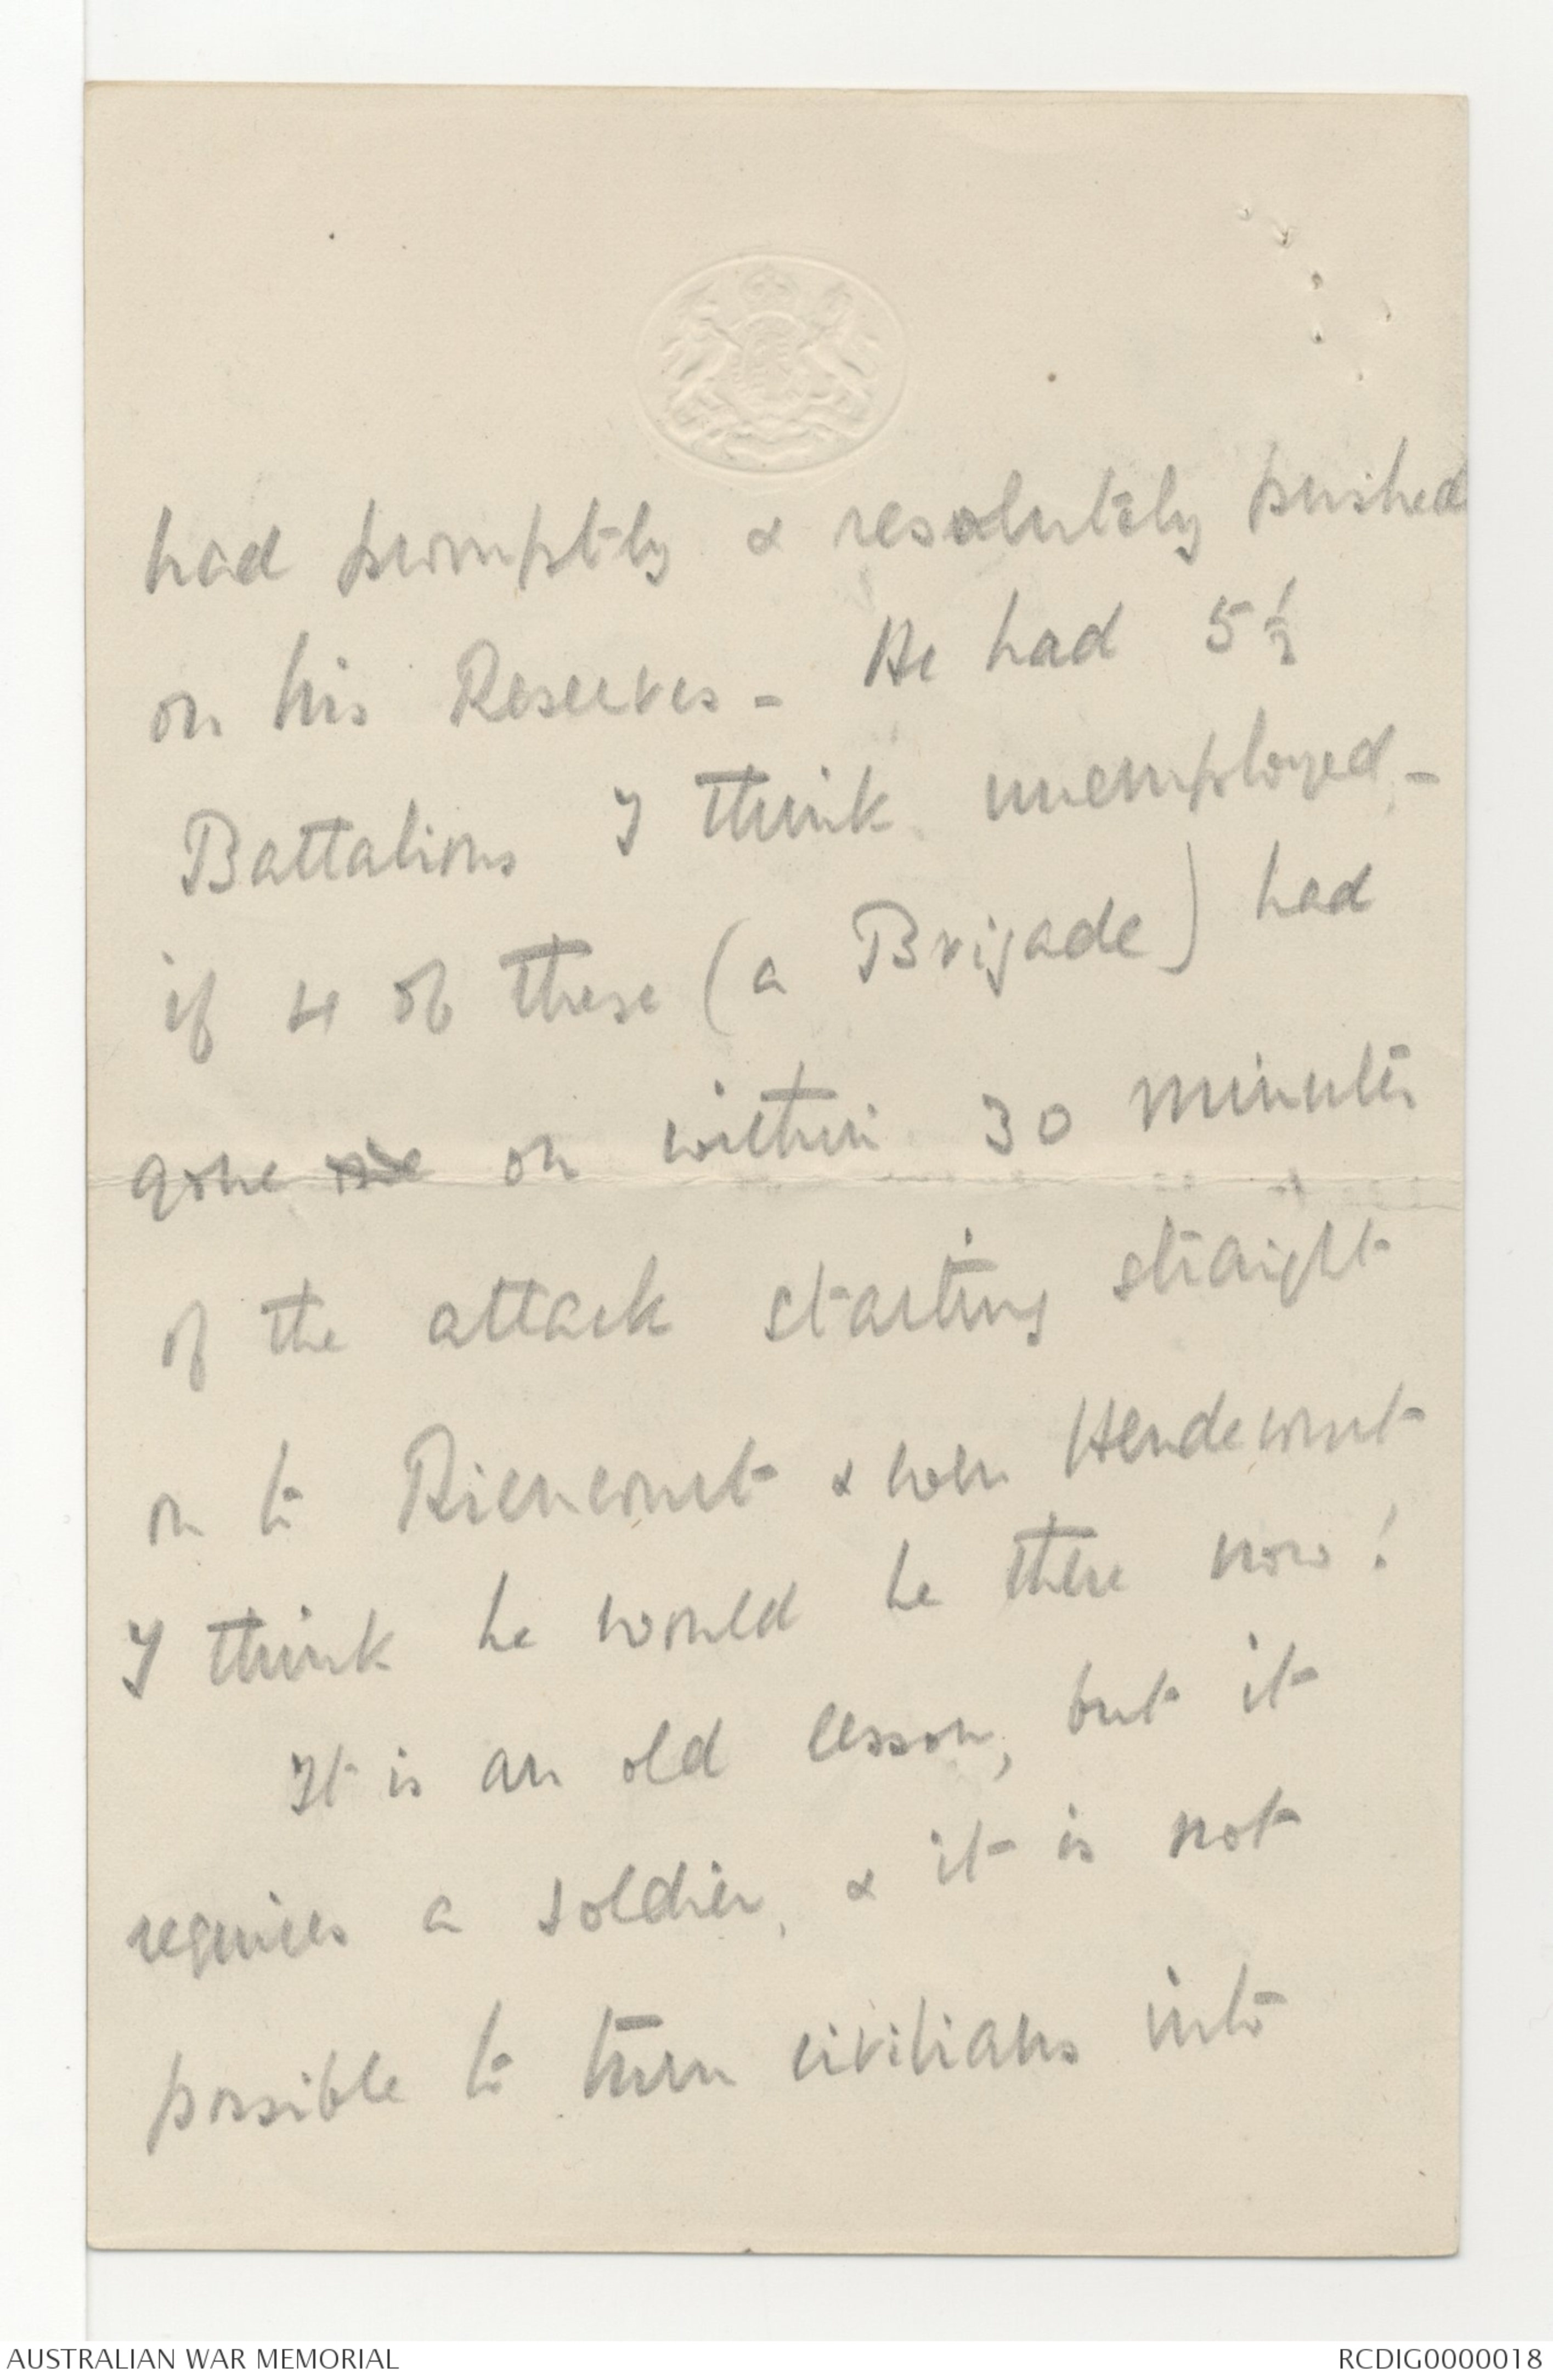 had promptly & resolutely pushed
on his Reserves - He had 5½
Battalions I think unemployed -
if 4 of these (a Brigade) had
gone on within 30 minutes
of the attack starting straight
on to Riencourt & when Hendecourt
I think he would be there now!
It is an old lesson, but it
requires a soldier, & it is not
possible to turn civilians into
AUSTRALIAN WAR MEMORIAL
RCDIG0000018